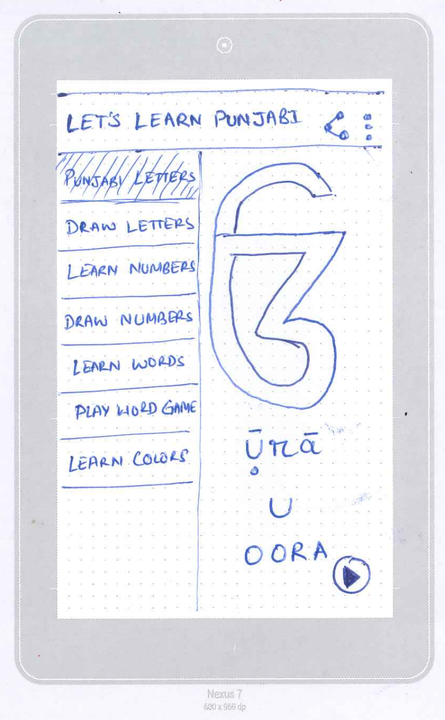 LET'S LEARN PUNJABI
PUNJABI LETTERS
DRAW LETTERS
LEARN NUMBERS
DRAW NUMBERS
LEARN WORDS
PLAY WORD GAME
LEARN COLORS
ੳ
U
OORA
Nexus 7
600 x dp